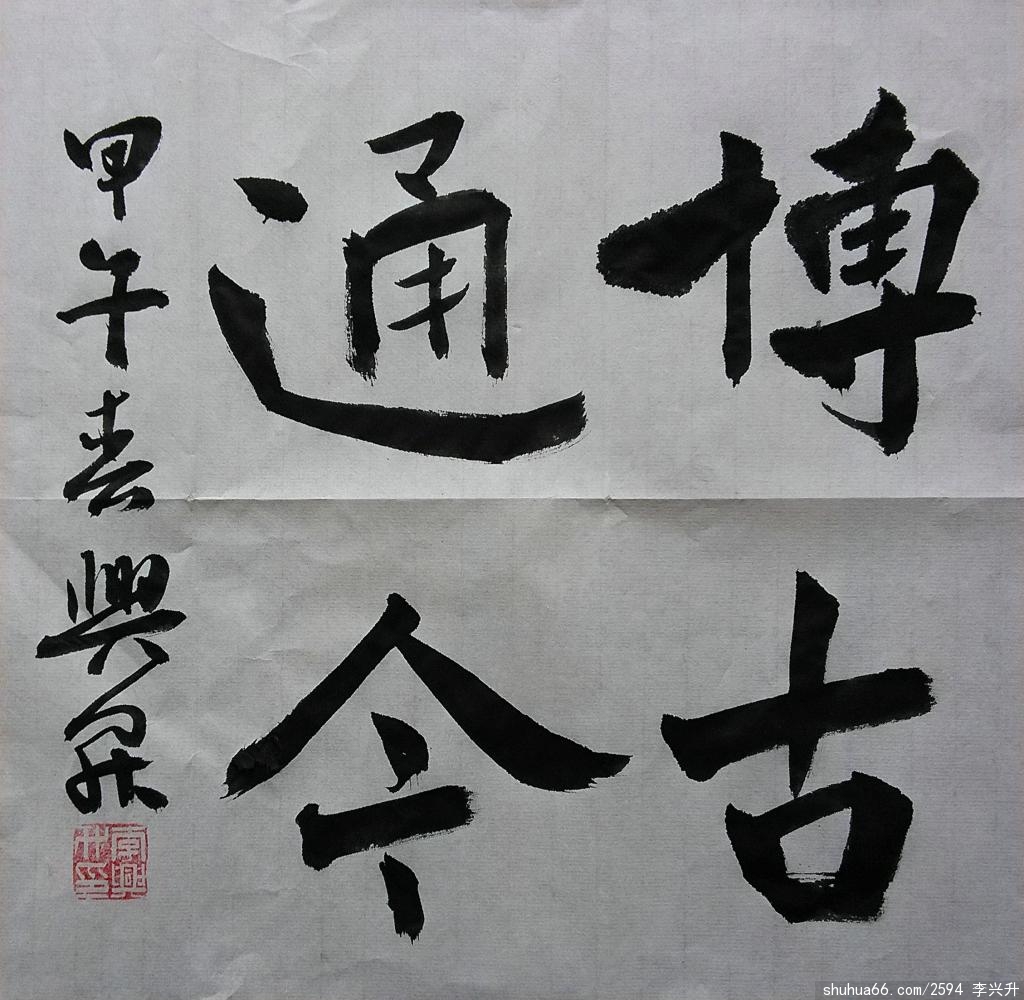 博古
通今
甲午春興昇
李興升印
shuhua66.com/2594 李兴升